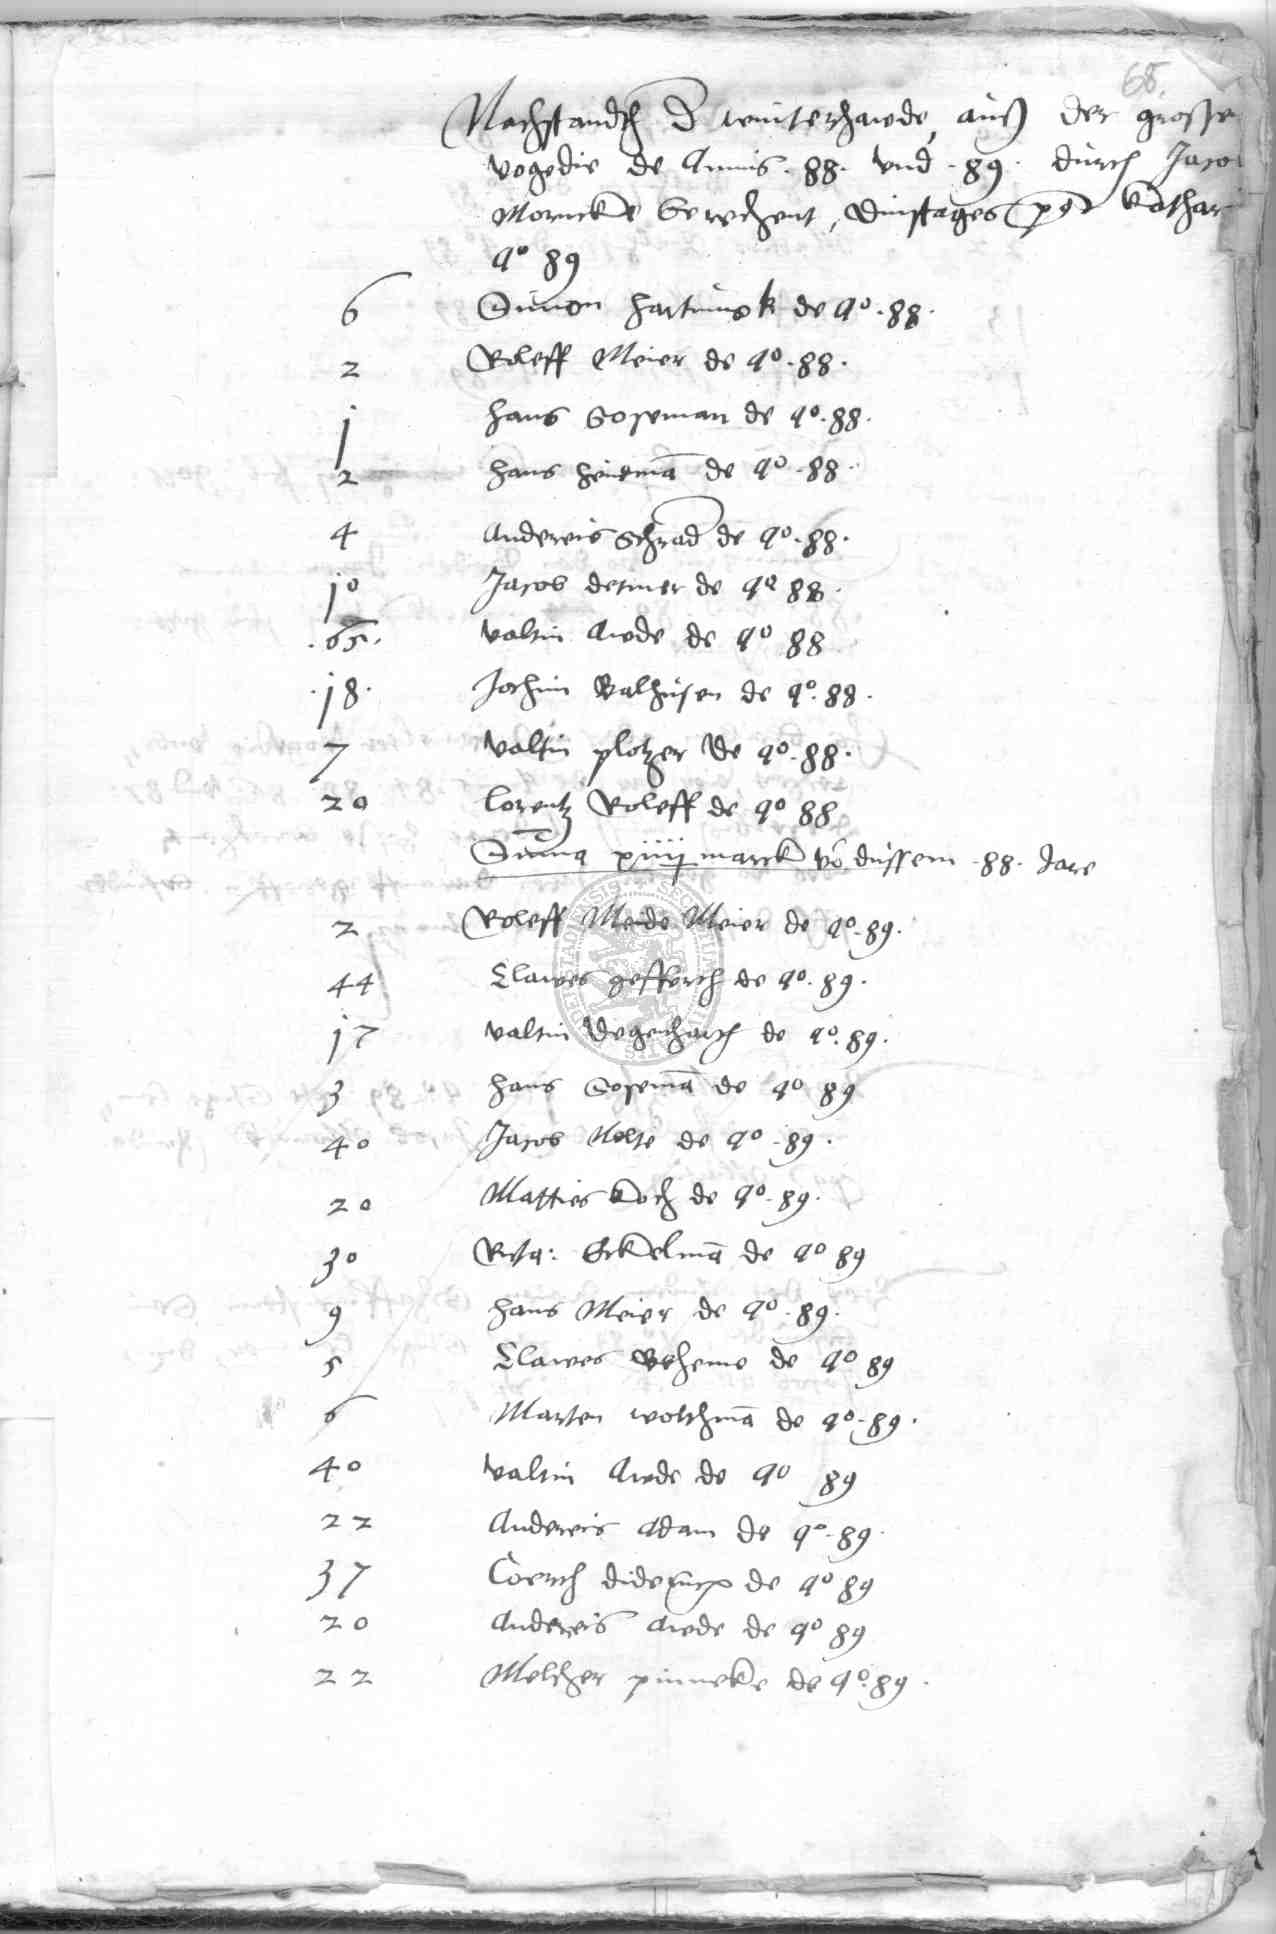 68.
Nachstandt d winterhawde, auß der grosse
vogedie de Annis . 88. vnd . 89. durch Jaco
Mornicke berechent, Dinstages post Kathar
ao 89
6 Simon hartmigk de ao . 88.
2 Roleff Meier de ao . 88.
1 hans Goseman de ao . 88.
2 hans heinemā de ao . 88.
4 Andereis Schrad de ao . 88.
10 Jacob detmer de ao 88.
. 65 . valtin Aede de ao 88
. 18 . Jochim Balhusen de ao . 88.
7 valtin plotzer de ao . 88.
20 Lorentz Roleff de ao 88
Suma xiiij marck vō dussem . 88. Jare
2 Roleff Meide Meier de ao . 89.
44 Clawes gefferch de ao . 89.
17 valtin Degenharth de ao . 89.
3 hans Gosemā de ao 89
40 Jacob Nolte de ao . 89.
20 Matties Koch de ao . 89.
30 Erkelmā de ao 89
9 hans Meier de ao . 89.
5 Clawes Beheme de ao 89
6 Marten wolthmā de ao . 89.
40 valtin Aede de ao 89
22 Andereis Adam de ao . 89.
37 Coerth diderich de ao 89
20 Andereis Aede de ao 89
22 Melcher pinneke de ao . 89.